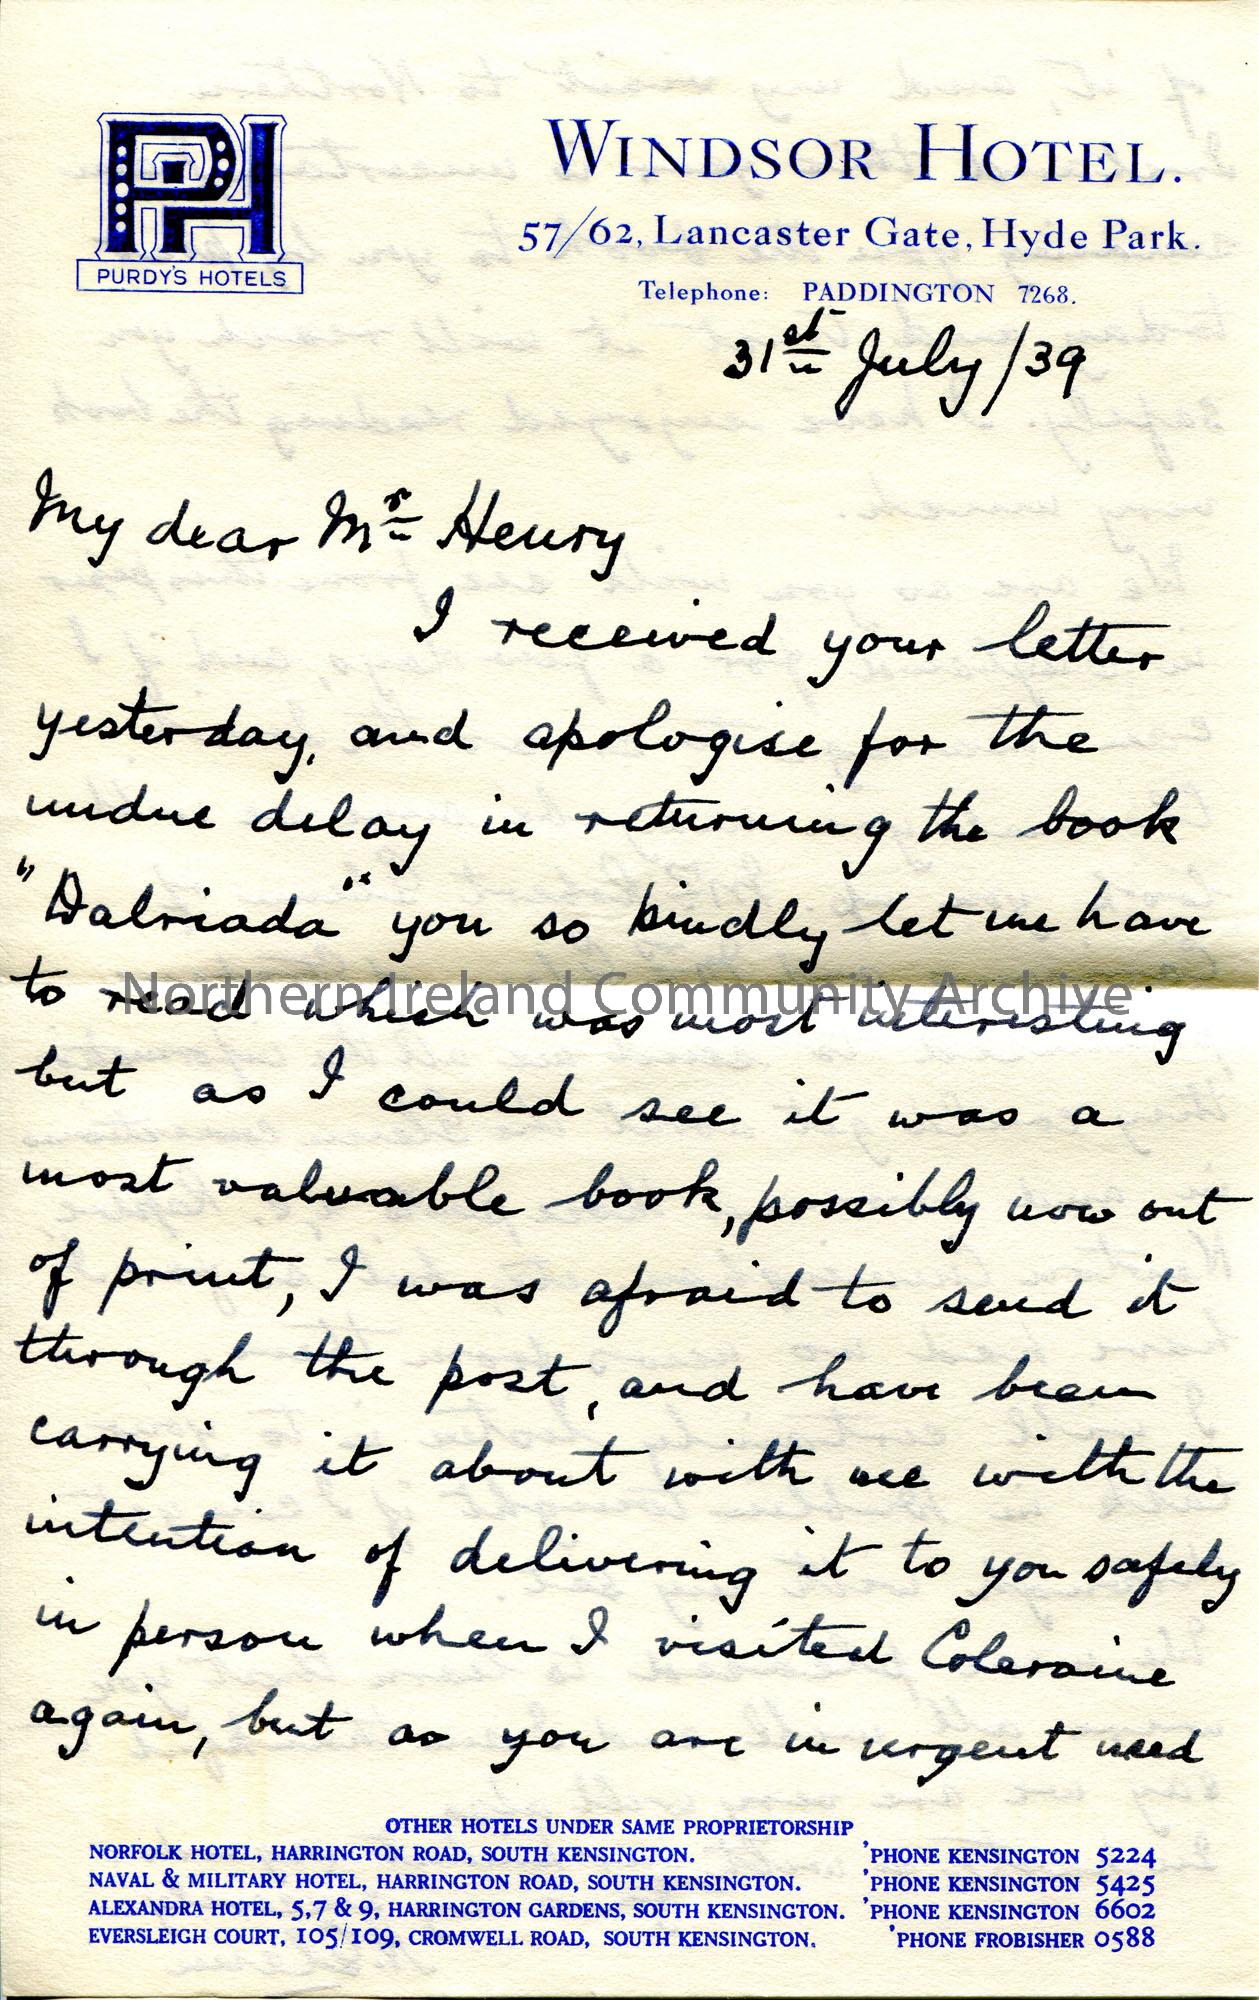 PH
PURDY'S HOTELS
WINDSOR HOTEL.
57/62, Lancaster Gate, Hyde Park.
Telephone: PADDINGTON 7268.
31st July /39
My dear Mr Henry
I received your letter
yesterday, and apologise for the
undue delay in returning the book
"Dalriada" you so kindly let me have
to read which was most interesting
Northern Ireland Community Archive
but as I could see it was a
most valuable book, possibly now out
of print, I was afraid to send it
through the post, and have been
carrying it about with me with the
intention of delivering it to you safely
in person when I visited Coleraine
again, but as you are in urgent need
OTHER HOTELS UNDER SAME PROPRIETORSHIP
NORFOLK HOTEL, HARRINGTON ROAD, SOUTH KENSINGTON. 'PHONE KENSINGTON 5224
NAVAL & MILITARY HOTEL, HARRINGTON ROAD, SOUTH KENSINGTON. 'PHONE KENSINGTON 5425
ALEXANDRA HOTEL, 5,7 & 9, HARRINGTON GARDENS, SOUTH KENSINGTON. 'PHONE KENSINGTON 6602
EVERSLEIGH COURT, 105/109, CROMWELL ROAD, SOUTH KENSINGTON. 'PHONE FROBISHER 0588